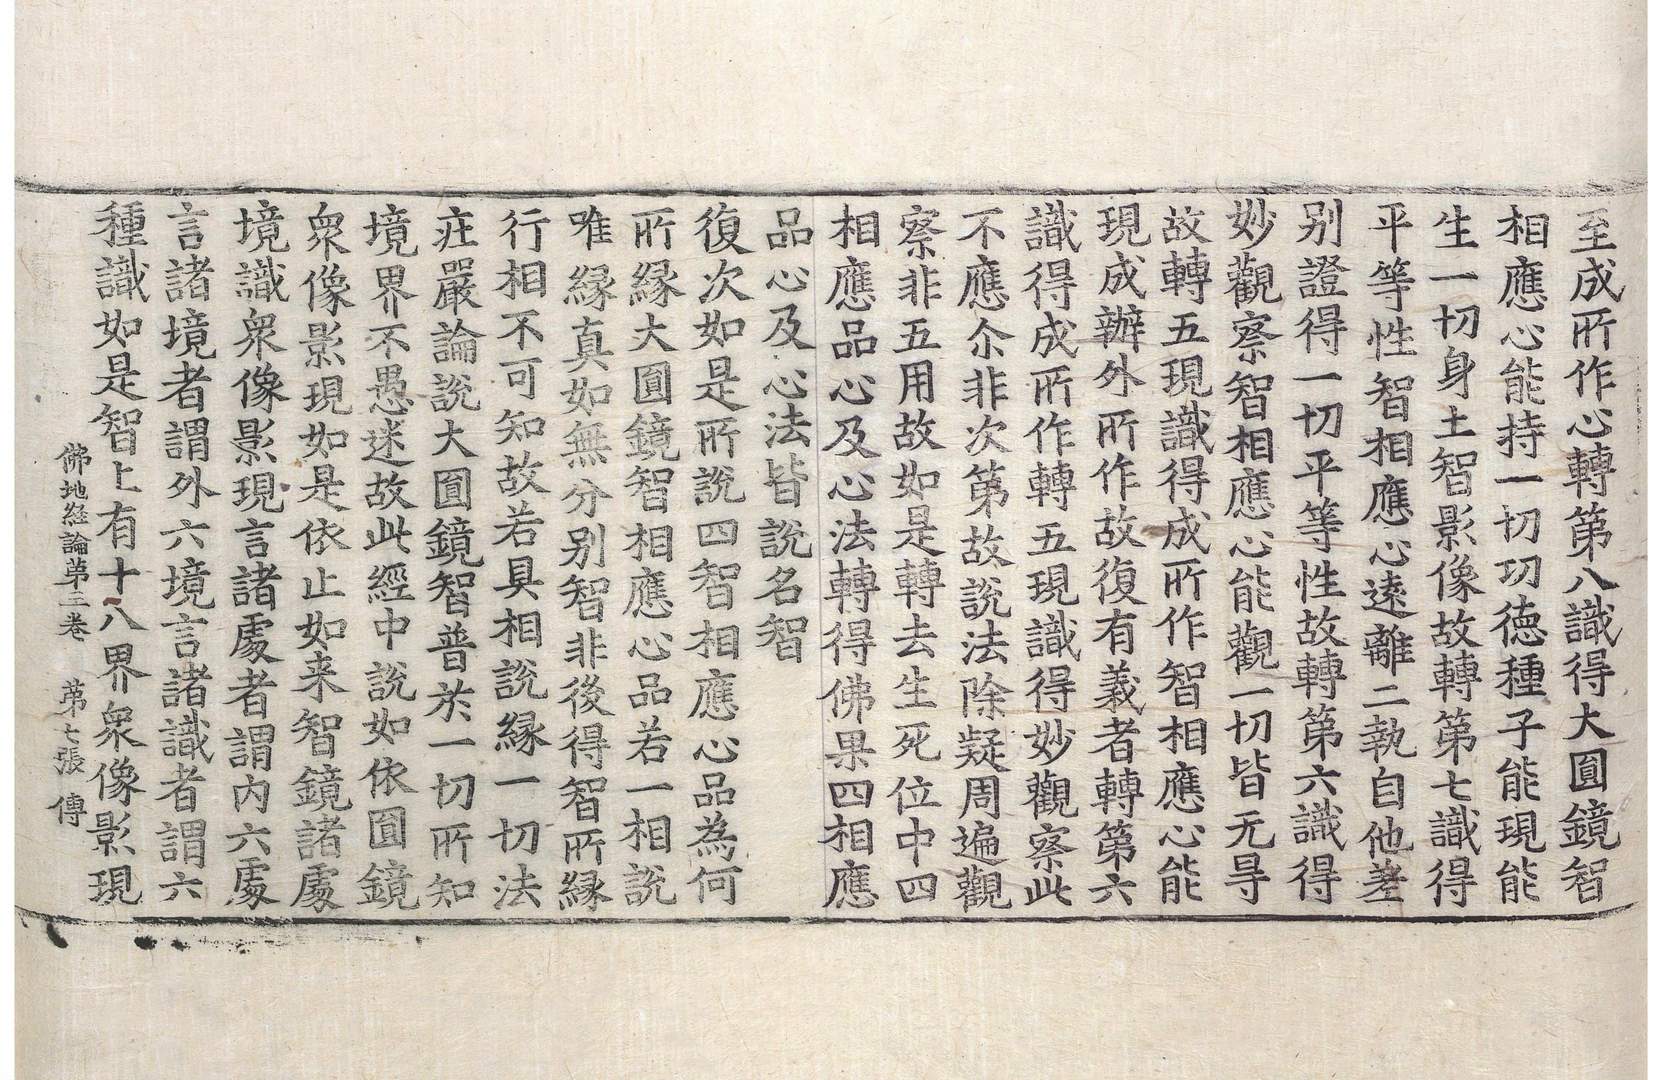 至成所作心轉第八識得大圓鏡智
相應心能持一切功德種子能現能
生一切身土智影像故轉第七識得
平等性智相應心遠離二執自他差
别證得一切平等性故轉第六識得
妙觀察智相應心能觀一切皆无㝵
故轉五現識得成所作智相應心能
現成辦外所作故復有義者轉第六
識得成所作轉五現識得妙觀察此
不應尒非次第故說法除疑周遍觀
察非五用故如是轉去生死位中四
相應品心及心法轉得佛果四相應
品心及心法皆說名智
復次如是所說四智相應心品為何
所緣大圓鏡智相應心品若一相說
唯緣真如無分别智非後得智所緣
行相不可知故若具相說緣一切法
庄嚴論說大圓鏡智普於一切所知
境界不愚迷故此經中說如依圓鏡
衆像影現如是依止如来智鏡諸處
境識衆像影現言諸處者謂內六處
言諸境者謂外六境言諸識者謂六
種識如是智上有十八界衆像影現
佛地経論第三卷 第七張 傳